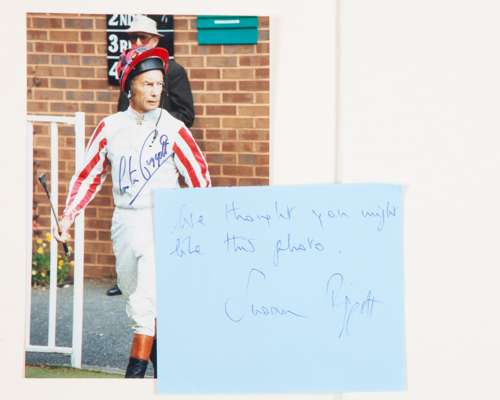 2ND
3RD
4
Lester Piggott
We thought you might
like this photo.
Susan Piggott